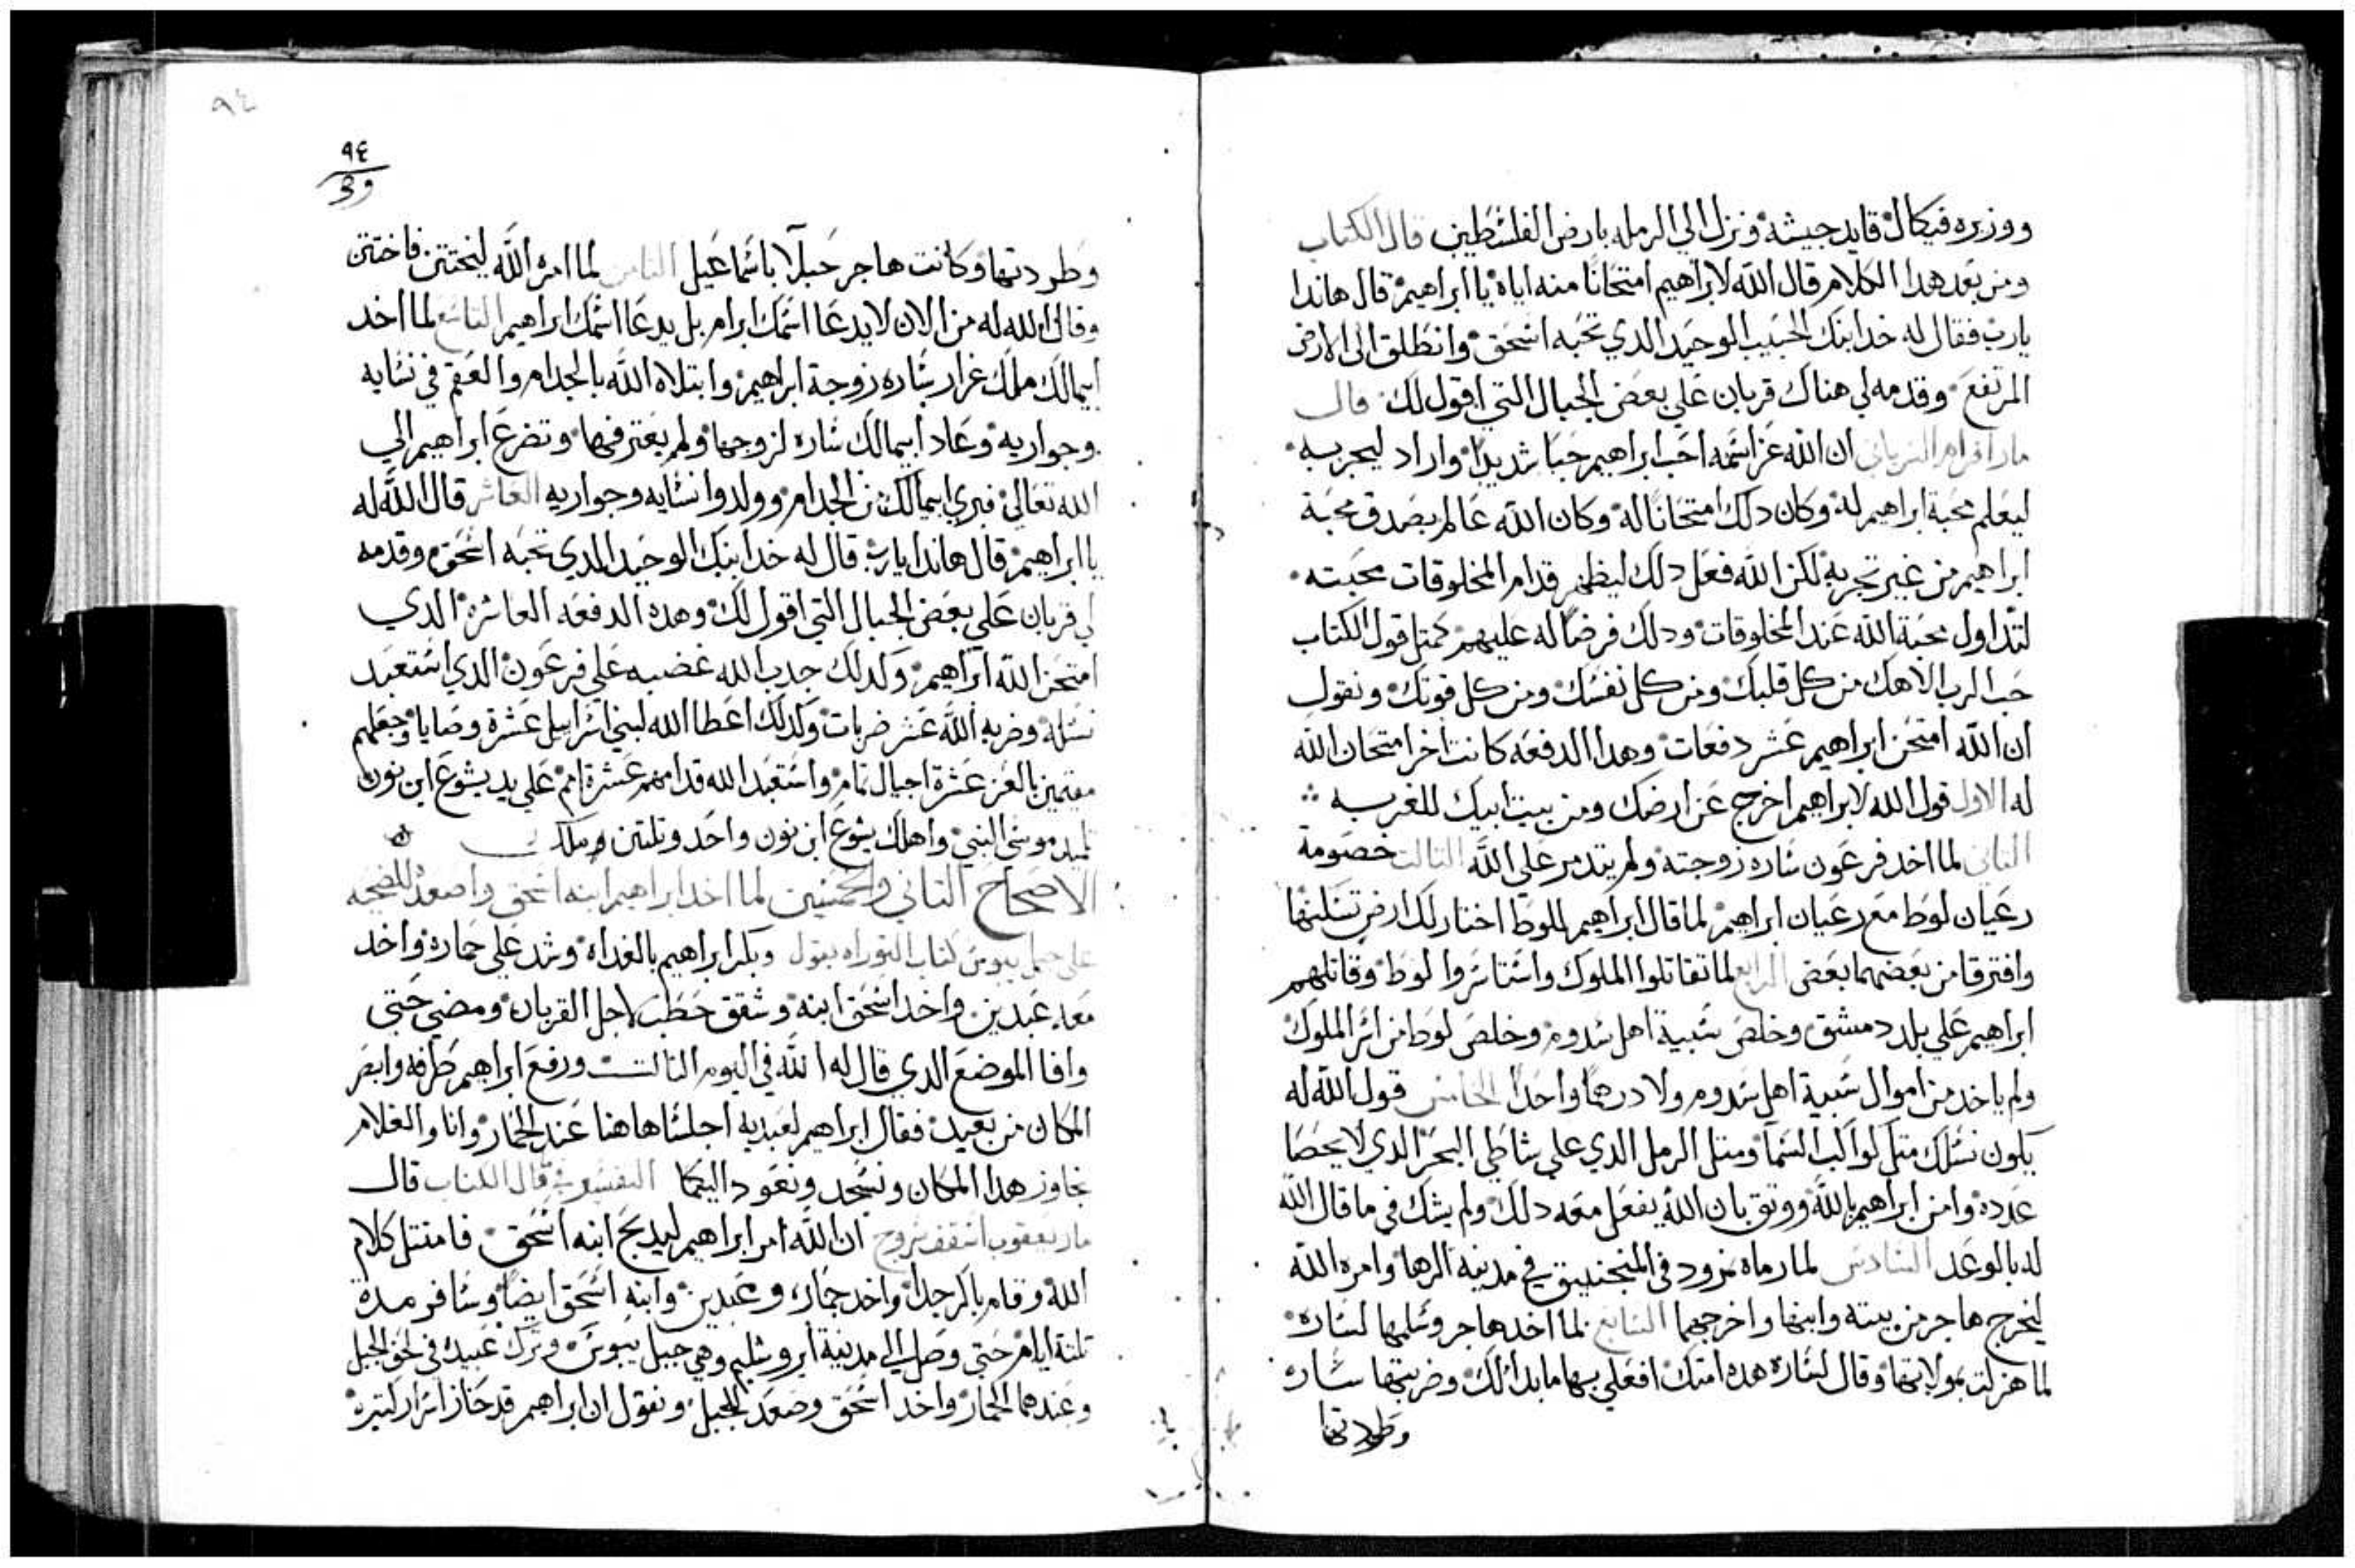 ووزيره فيكال قايد جيشه ونزل الي الرمله بارض الفلسطين قال الكتاب
ومن بعد هدا الكلام قال الله لابراهيم امتحانا منه اياه يا ابراهيم قال هاندا
يارب فقال له خد ابنك الحبيب الوحيد الدي تحبه اسحق وانطلق الي الارض
المرتفع وقدمه لي هناك قربان علي بعض الجبال التي اقول لك قال
مار افرام السرياني ان الله عز اسمه احب ابراهيم حبا شديدا واراد ليجربه
ليعلم محبة ابراهيم له وكان دلك امتحانا له وكان الله عالم بصدق محبة
ابراهيم من غير تجربه لكن الله فعل دلك ليظهر قدام المخلوقات محبته
لتداول محبة الله عند المخلوقات ودلك فرضا له عليهم كمتل قول الكتاب
حب الرب الاهك من كل قلبك ومن كل نفسك ومن كل قوتك ونقول
ان الله امتحن ابراهيم عشر دفعات وهدا الدفعه كانت اخر امتحان الله
له الاول قول الله لابراهيم اخرج عن ارضك ومن بيت ابيك للغربه
التاني لما اخد فرعون ساره زوجته ولم يتدمر علي الله التالت خصومة
رعيان لوط مع رعيان ابراهيم لما قال ابراهيم للوط اختار لك ارض تسكنها
وافترقا من بعضهما بعض الرابع لما تقاتلوا الملوك واستاسروا لوط وقاتلهم
ابراهيم علي بلد دمشق وخلص سبية اهل سدوم وخلص لوط من اسر الملوك
ولم ياخد من اموال سبية اهل سدوم ولا درهما واحدا الخامس قول الله له
يكون نسلك متل كواكب السما ومتل الرمل الدي علي شاطي البحر الدي لا يحصا
عدده وامن ابراهيم بالله ووتق بان الله يفعل معه دلك ولم يشك في ما قال الله
له بالوعد السادس لما رماه نمرود في المنجنيق في مدينه الرها وامره الله
ليخرج هاجر من بيته وابنها واخرجهما السابع لما اخد هاجر وسلمها لساره
لما هزلت بمولاتها وقال لساره هده امتك افعلي بها ما بدا لك وضربتها ساره
وطردتها
٩٤
٩٤
وطردتها وكانت هاجر حبلا باسماعيل التامن لما امره الله ليختتن فاختتن
وقال الله له من الان لا يدعا اسمك ابرام بل يدعا اسمك ابراهيم التاسع لما اخد
ابيمالك ملك غرار ساره زوجة ابراهيم وابتلاه الله بالجدام والعقم في نسايه
وجواريه وعاد ابيمالك ساره لزوجها ولم يقترفها وتضرع ابراهيم الي
الله تعالي فبري ابيمالك من الجدام وولدوا نسايه وجواريه العاشر قال الله له
يا ابراهيم قال هاندا يارب قال له خد ابنك الوحيد الدي تحبه اسحق وقدمه
لي قربان علي بعض الجبال التي اقول لك وهده الدفعه العاشره الدي
امتحن الله ابراهيم ولدلك جدب الله غضبه علي فرعون الدي استعبد
نسله وضربه الله عشر ضربات وكدلك اعطا الله لبني اسراييل عشرة وصايا وجعلهم
مقيمين بالعز عشرة اجيال تمام واستعبد الله قدامهم عشرة امم علي يد يشوع ابن نون
تلميد موسي النبي واهلك يشوع ابن نون واحد وتلتين ملك
الاصحاح التاني والخمسين لما اخد ابراهيم ابنه اسحق واصعده للضحيه
علي جبل يبوس كتاب التوراه يقول وبكر ابراهيم بالغداه وشد علي حماره واخد
معه عبدين واخد اسحق ابنه وشقق حطب لاجل القربان ومضي حتي
وافا الموضع الدي قال له الله في اليوم التالت ورفع ابراهيم طرفه وابصر
المكان من بعيد فقال ابراهيم لعبديه اجلسا هاهنا عند الحمار وانا والغلام
نجاوز هدا المكان ونسجد ونعود اليكما التفسير قال الكتاب قال
مار يعقوب اسقف سروج ان الله امر ابراهيم ليدبح ابنه اسحق فامتتل كلام
الله وقام باكر جدا واخد حماره وعبدين وابنه اسحق ايضا وسافر مدة
تلتة ايام حتي وصل الي مدينة ايروشليم وهي جبل يبوس وترك عبيده في لحف الجبل
وعندهما الحمار واخد اسحق وصعد للجبل ونقول ان ابراهيم قد حاز اسرار كتيره